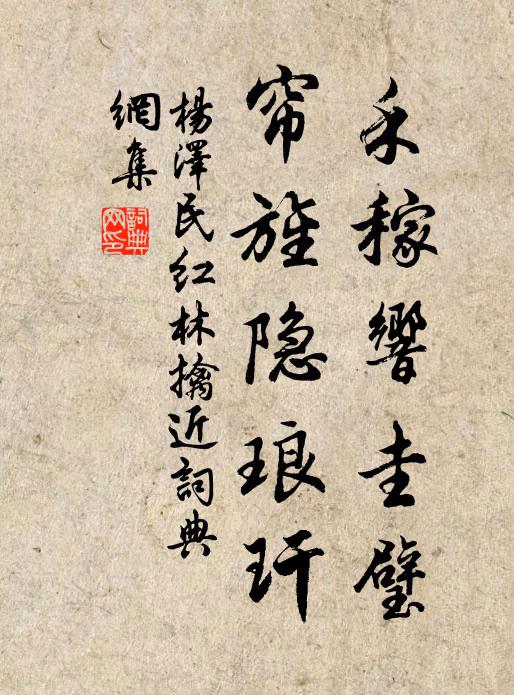 禾稼響圭璧
帘旌隐琅玕
楊澤民红林擒近詞典
網集
詞典
网印